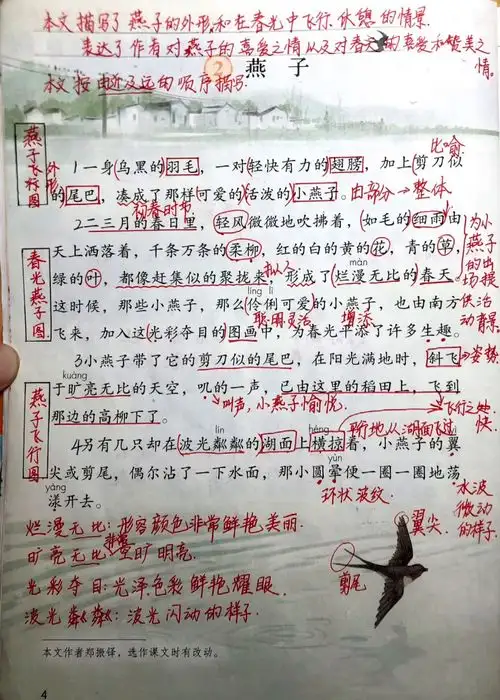 本文描写了燕子的外形,和在春光中飞行、休憩的情景.
表达了作者对燕子的喜爱之情以及对春天的喜爱和赞美之情.
本文按由近及远的顺序描写.
2 燕子
燕子飞标图
外形
比喻
1一身乌黑的羽毛，一对轻快有力的翅膀，加上剪刀似
的尾巴，凑成了那样可爱的活泼的小燕子。由部分→整体
初春时节
2二三月的春日里，轻风微微地吹拂着，如毛的细雨由
天上洒落着，千条万条的柔柳，红的白的黄的花，青的草，
màn
绿的叶，都像赶集似的聚拢来，形成了烂漫无比的春天。
拟人
líng lì
这时候，那些小燕子，那么伶俐可爱的小燕子，也由南方
聪明灵活
增添
飞来，加入这光彩夺目的图画中，为春光平添了许多生趣。
春光燕子图
为小燕子的出场提供活动背景
3小燕子带了它的剪刀似的尾巴，在阳光满地时，斜飞→姿势
kuàng
于旷亮无比的天空，叽的一声，已由这里的稻田上，飞到
叫声,小燕子愉悦.
那边的高柳下了。
飞行之处快
平行地从湖面飞过
燕子飞行图
lín
héng
4另有几只却在波光粼粼的湖面上横掠着，小燕子的翼
yùn
尖或剪尾，偶尔沾了一下水面，那小圆晕便一圈一圈地荡
yàng
漾开去。
环状波纹
水波微动的样子.
烂漫无比:形容颜色非常鲜艳美丽.
旷亮无比:非常空旷明亮.
光彩夺目:光泽色彩鲜艳耀眼.
波光粼粼:波光闪动的样子.
翼尖
剪尾
本文作者郑振铎，选作课文时有改动。
4